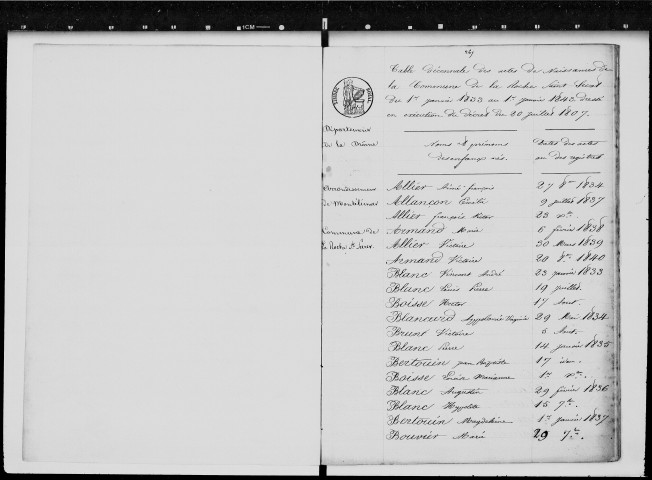 Table décennale des actes de Naissances de
la Commune de la Roche Saint Secret
du 1er janvier 1833 au 1er janvier 1843 dressé
en exécution du décret du 20 juillet 1807.
Département
de la Drôme
Arrondissement
de Montélimar
Commune de
La Roche St Secret
Noms & prénoms
des enfans nés.
Dates des actes
ou des registres
Allier Aimé françois 27 8bre 1834
Allançon Emilie 9 juillet 1837
Allier françois 23 Xbre
Armand Marie 6 février 1838
Allier Victoire 30 Mars 1839
Armand Victoire 20 8bre 1840
Blanc Vincent André 23 janvier 1833
Blanc Louis Pierre 19 juillet
Boisse Hector 17 Aout
Blancard Virginie 29 Mai 1834
Brunt Victoire 5 Aout
Blanc Pierre 14 janvier 1835
Bertouin jean Baptiste 17 do
Boisse Louise Marianne 1er Xbre
Blanc Augustin 29 février 1836
Blanc Hyppolite 15 7bre
Bertouin Magdeleine 1er janvier 1837
Bouvier Marie 29 7bre
1CM